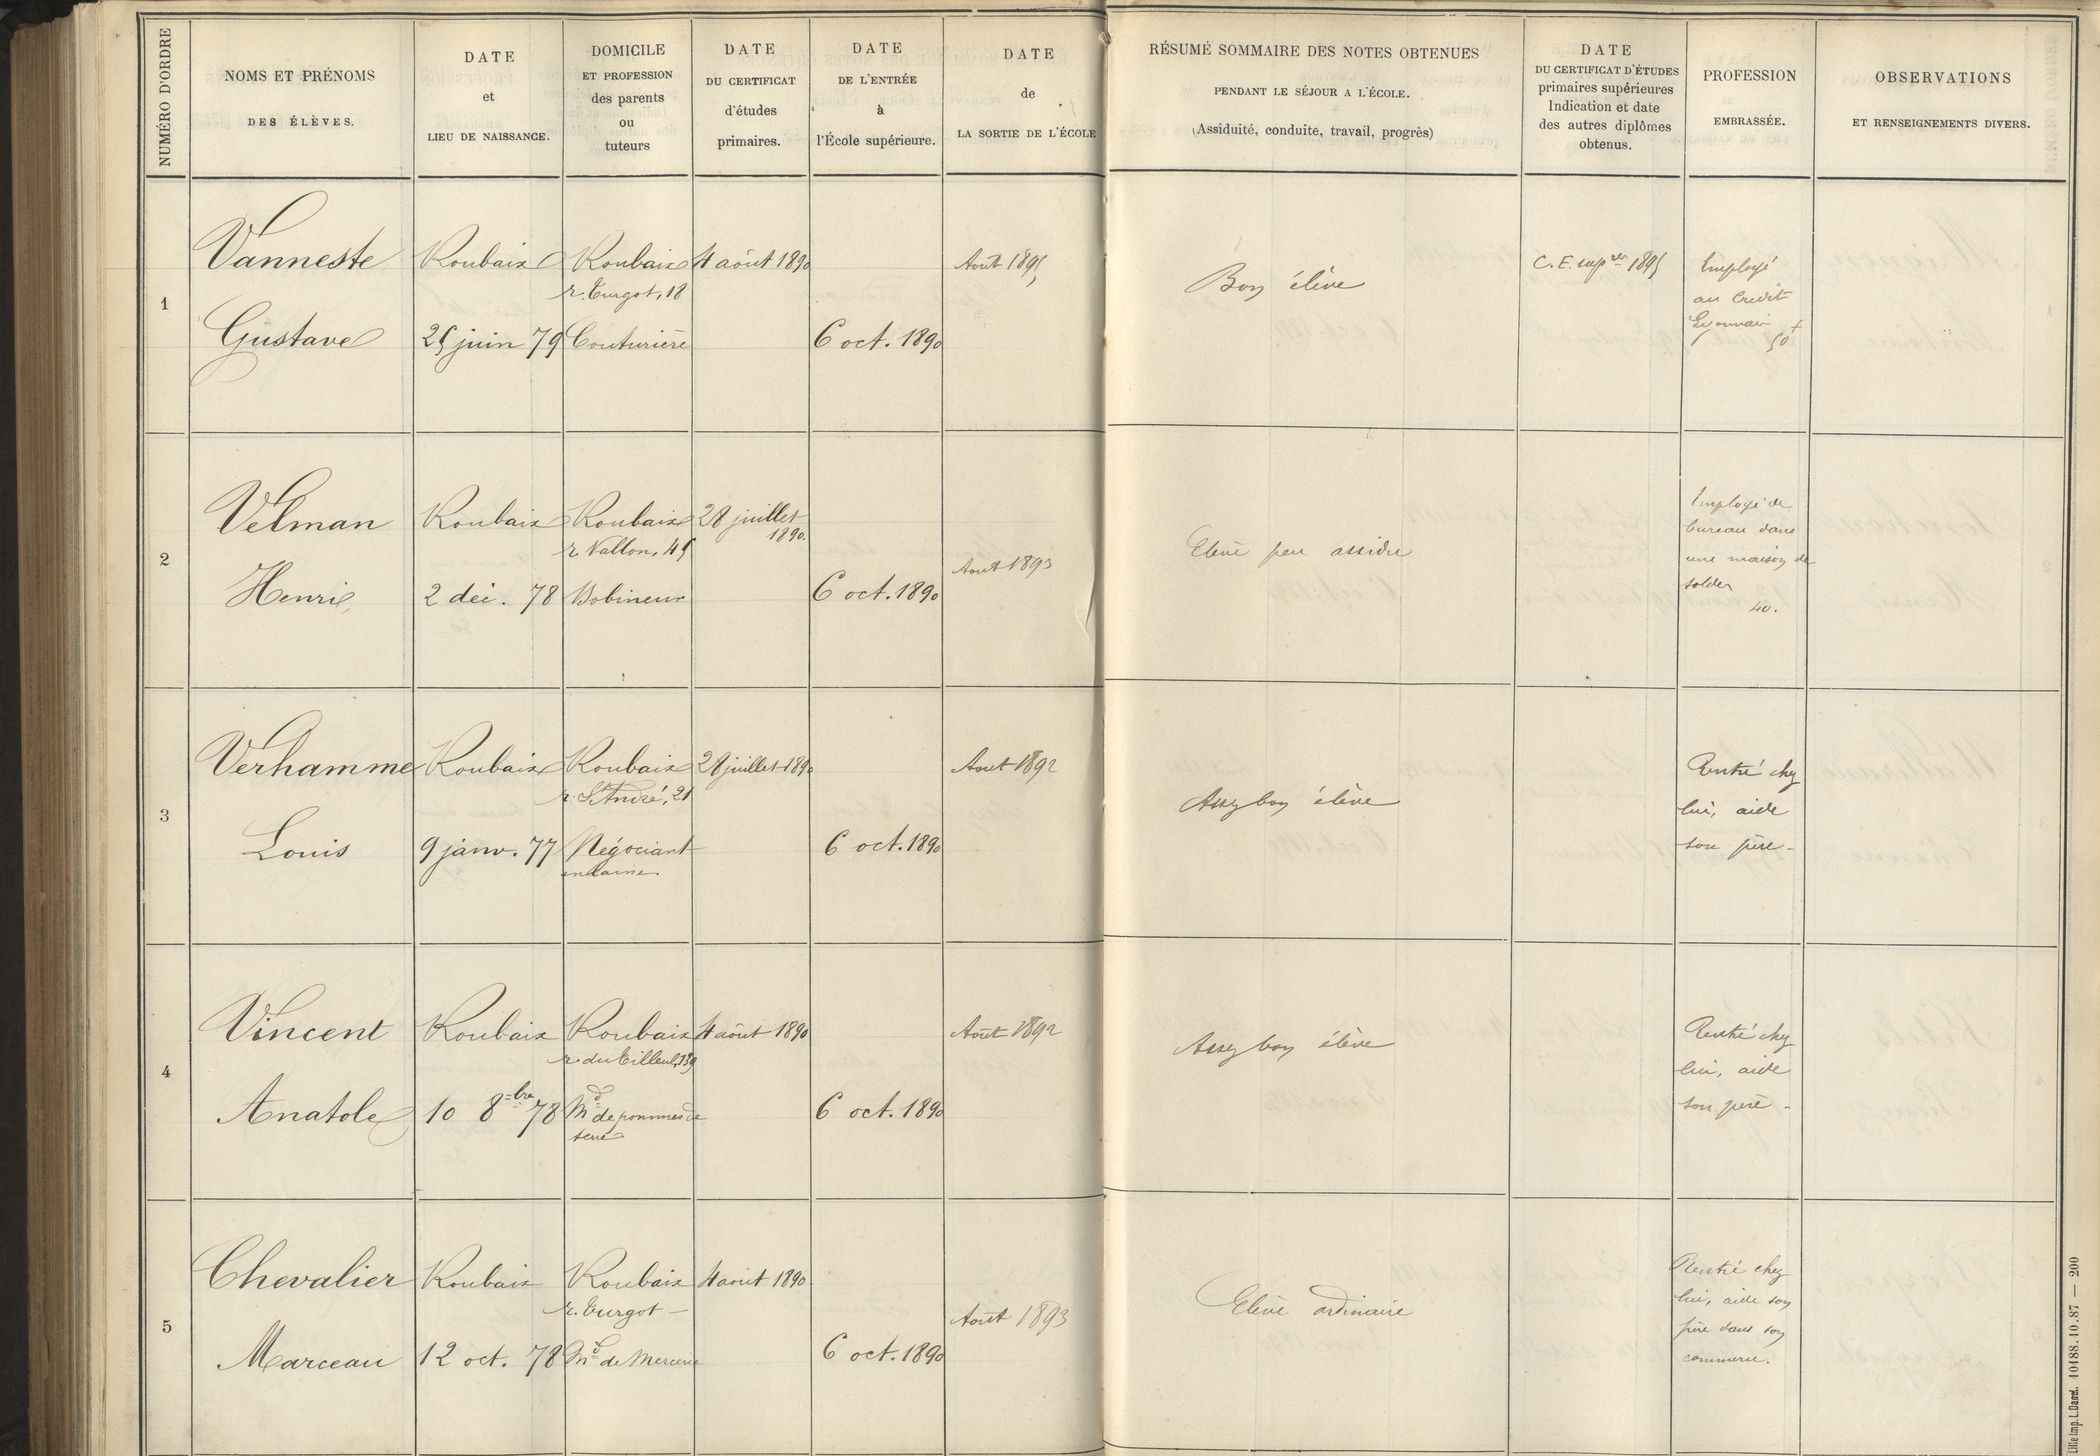 NUMÉRO D'ORDRE
NOMS ET PRÉNOMS
DES ÉLÈVES.
DATE
et
LIEU DE NAISSANCE.
DOMICILE
ET PROFESSION
des parents
ou
tuteurs
DATE
DU CERTIFICAT
d'études
primaires.
DATE
DE L'ENTRÉE
à
l'École supérieure.
DATE
de
LA SORTIE DE L'ÉCOLE
RÉSUMÉ SOMMAIRE DES NOTES OBTENUES
PENDANT LE SÉJOUR A L'ÉCOLE.
(Assiduité, conduite, travail, progrès)
DATE
DU CERTIFICAT D'ÉTUDES
primaires supérieures
Indication et date
des autres diplômes
obtenus.
PROFESSION
EMBRASSÉE.
OBSERVATIONS
ET RENSEIGNEMENTS DIVERS.
1
Vanneste
Gustave
Roubaix
25 juin 79
Roubaix
r. Turgot, 18
Couturière
4 août 1890
6 oct. 1890
Août 1895
Bon élève
C. E. supres 1895
Employé
au Crédit
Lyonnais
50 +
2
Velman
Henri
Roubaix
2 déc. 78
Roubaix
r. Vallon, 45
Bobineur
28 juillet
1890.
6 oct. 1890
Aout 1893
Elève peu assidu
Employé de
bureau dans
une maison de
soldes
40.
3
Verhamme
Louis
Roubaix
9 janv. 77
Roubaix
r. St André, 21
Négociant
en laine.
28 juillet 1890
6 oct. 1890
Aout 1892
Assez bon élève
Rentré chez
lui, aide
son père -
4
Vincent
Anatole
Roubaix
10 8bre 78
Roubaix
r. du Tilleul, 139
Md de pommes de
terre
4 août 1890
6 oct. 1890
Août 1892
Assez bon élève
Rentré chez
lui, aide
son père -
5
Chevalier
Marceau
Roubaix
12 oct. 78
Roubaix
r. Turgot -
Md de Mercerie
4 août 1890
6 oct. 1890
Août 1893
Elève ordinaire
Rentré chez
lui, aide son
père dans son
commerce.
Lille Imp. L. Danel. 10488.10.87 — 200